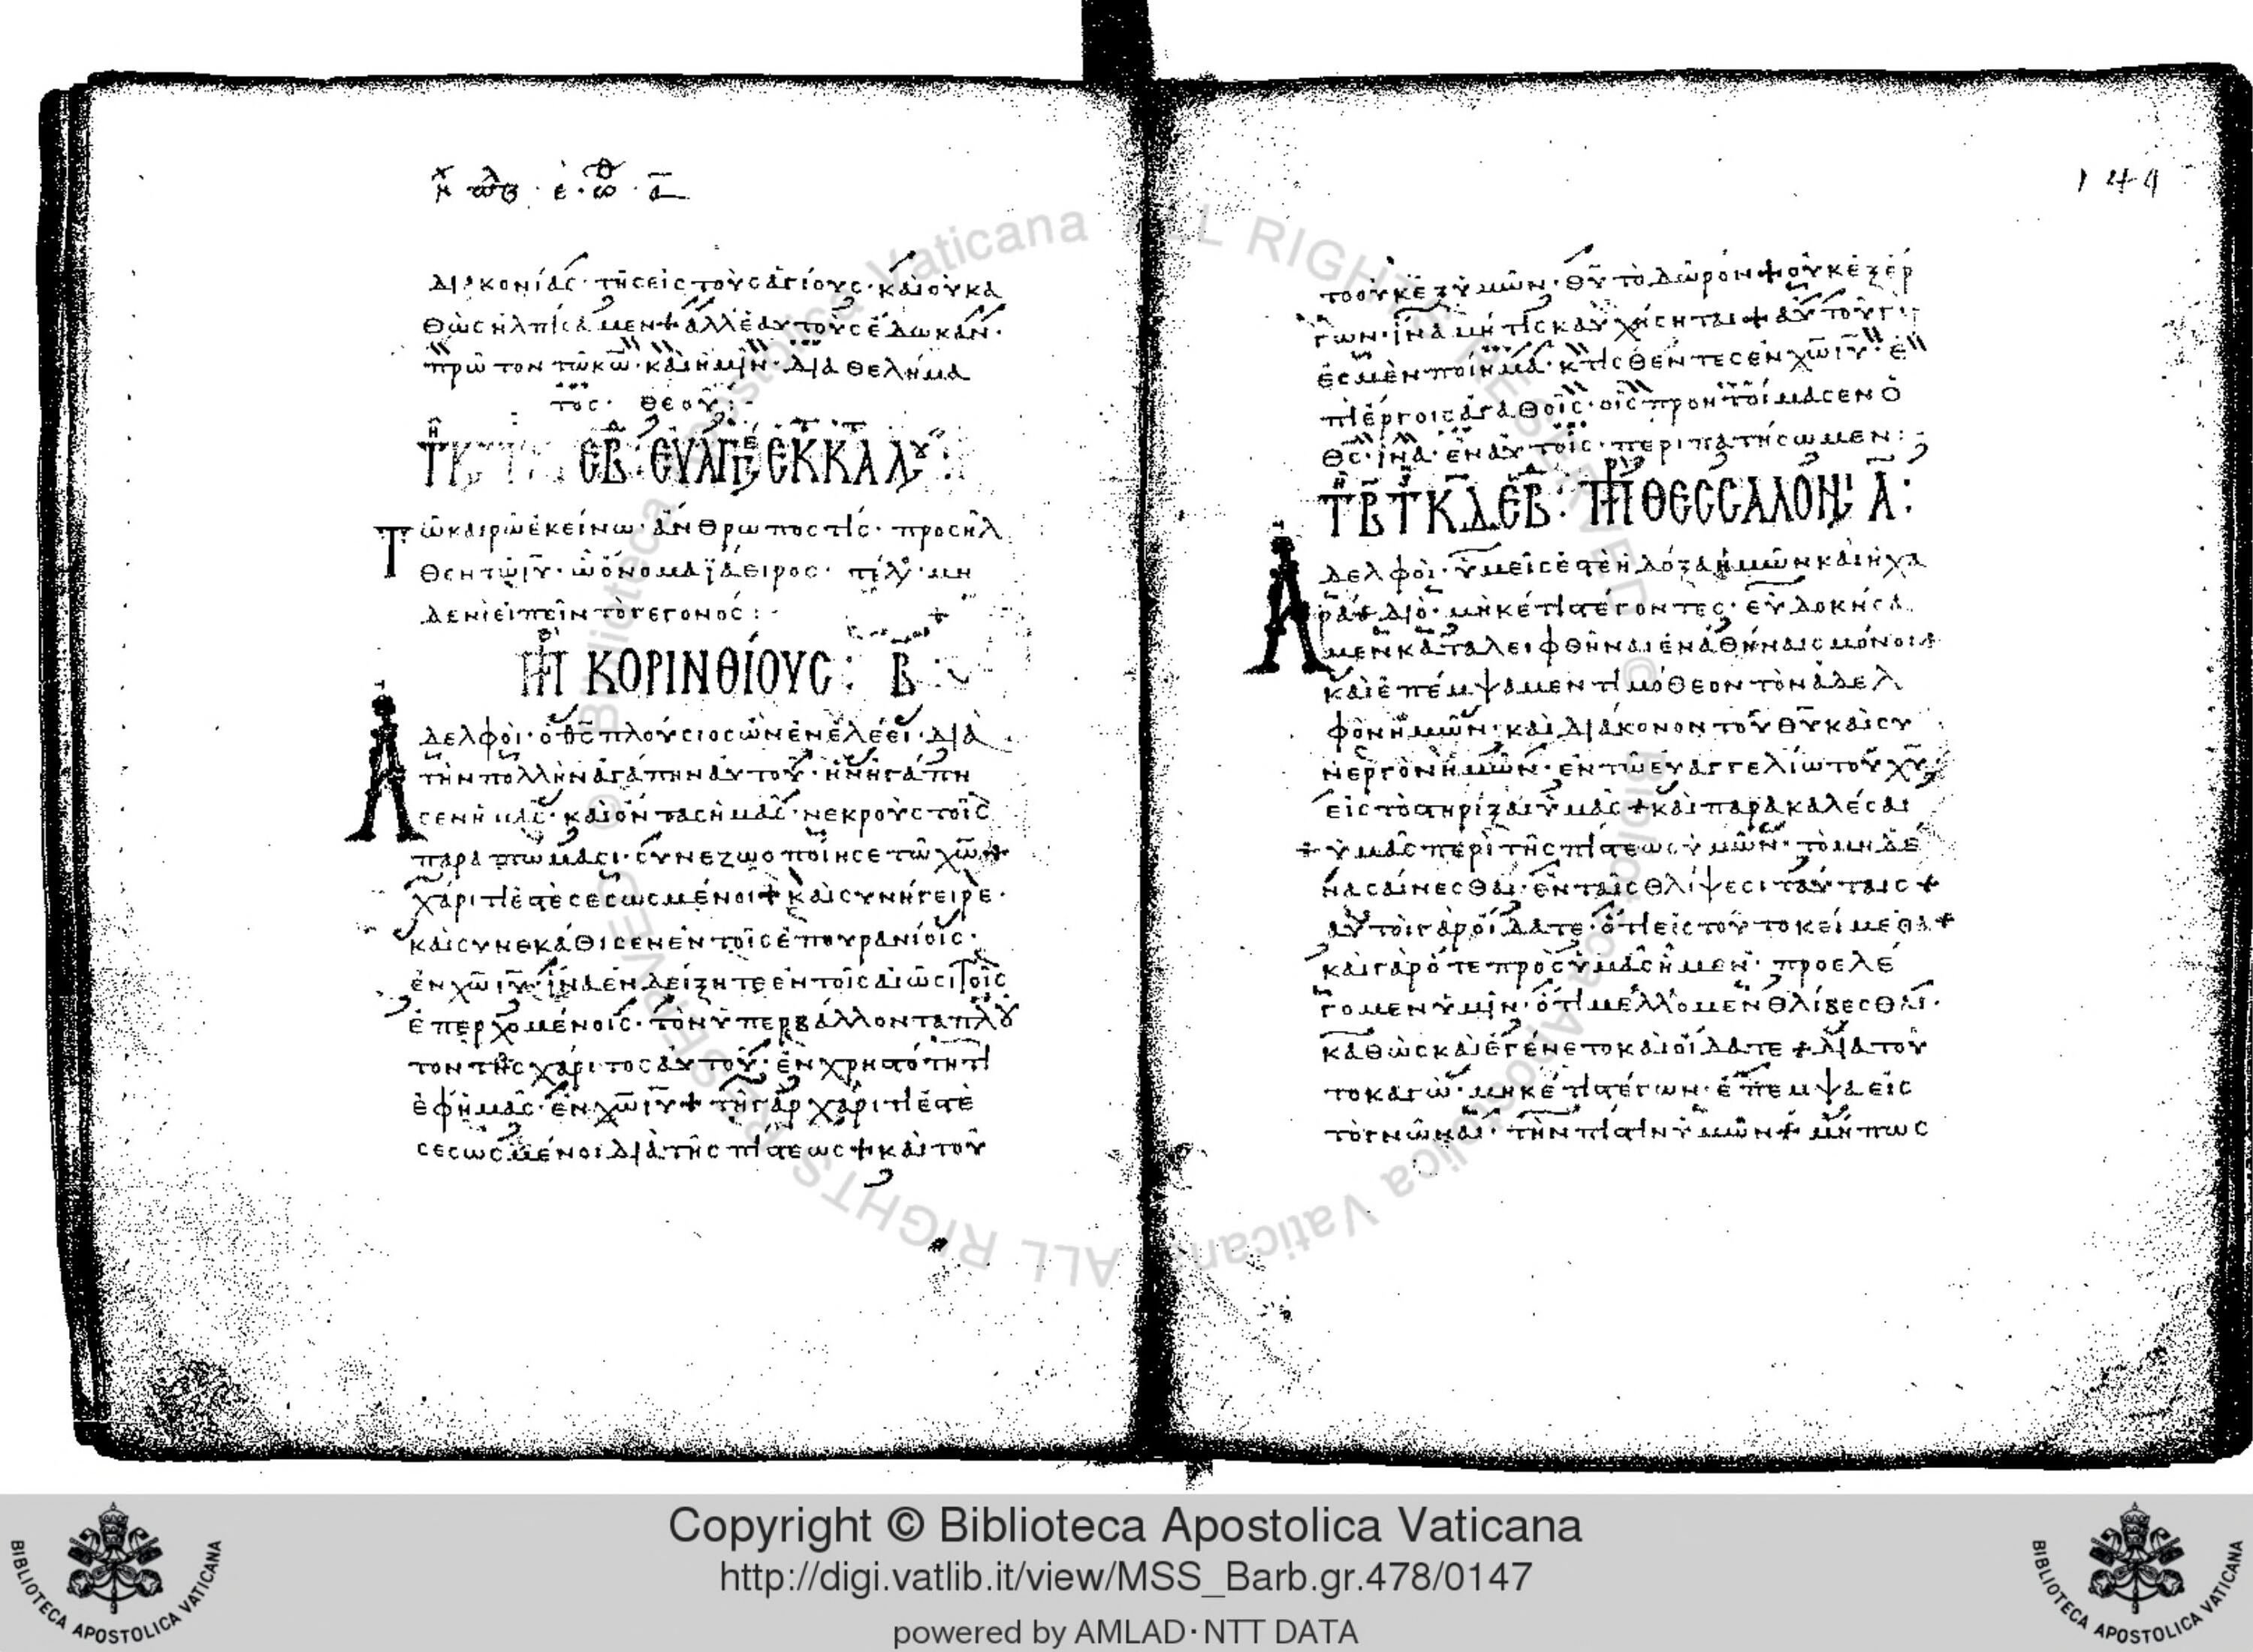 διακονίας· τῆς εἰς τοὺς ἁγίους· καὶ οὐ κα
θὼς ἠλπίσαμεν + ἀλλ' ἑαυτοὺς ἔδωκαν·
πρῶτον τῷ κω· καὶ ἡμῖν· διὰ θελήμα
τος· θεοῦ:
ΕΥΑΓΓ
Τῶ καιρῶ ἐκείνω· ἄνθρωπός τις· προσῆλ
θεν τῷ ιυ· ὧ ὄνομα ϊάειρος· μη
δενὶ εἰπεῖν τὸ γεγονός:
ΚΟΡΙΝΘΙΟΥΣ: Β
Αδελφοὶ· ὁ θς πλούσιος ὢν ἐν ἐλέει· διὰ
τὴν πολλὴν ἀγάπην αὐτοῦ· ἣν ἠγάπη
σεν ἡμᾶς· καὶ ὄντας ἡμᾶς· νεκροὺς τοῖς
παραπτώμασι· συνεζωοποίησε τῶ χω +
χάριτί ἐστε σεσωσμένοι + καὶ συνήγειρε·
καὶ συνεκάθισεν ἐν τοῖς ἐπουρανίοις·
ἐν χω ιυ· ἵνα ἐνδείξητε ἐν τοῖς αἰῶσι τοῖς
ἐπερχομένοις· τὸν ὑπερβάλλοντα πλοῦ
τον τῆς χάριτος αὐτοῦ· ἐν χρηστότητι
ἐφ ἡμᾶς· ἐν χω ιυ + τῆ γὰρ χάριτί ἐστε
σεσωσμένοι διὰ τῆς πίστεως + καὶ τοῦ
144
το οὐκ ἐξ ὑμῶν· θυ τὸ δῶρον + οὐκ ἐξ ἔρ
γων· ἵνα μή τις καυχήσηται + αὐτοῦ γάρ
ἐσμὲν ποίημα· κτισθέντες ἐν χω ιυ· ἐ
πὶ ἔργοις ἀγαθοῖς· οἷς προητοίμασεν ὁ
θς· ἵνα· ἐν αὐτοῖς· περιπατήσωμεν:
ΘΕΣΣΑΛΟΝ Α:
Αδελφοὶ· ὑμεῖς ἐστὲ ἡ δόξα ἡμῶν καὶ ἡ χα
ρά + διὸ· μηκέτι στέγοντες· εὐδοκήσα
μεν καταλειφθῆναι ἐν ἀθήναις μόνοι +
καὶ ἐπέμψαμεν τιμόθεον τὸν ἀδελ
φὸν ἡμῶν· καὶ διάκονον τοῦ θυ καὶ συ
νεργὸν ἡμῶν· ἐν τῷ εὐαγγελίω τοῦ χυ
εἰς τὸ στηρίξαι ὑμᾶς + καὶ παρακαλέσαι
+ ὑμᾶς περὶ τῆς πίστεως ὑμῶν· τὸ μηδέ
να σαίνεσθαι· ἐν ταῖς θλίψεσι ταύταις +
αὐτοὶ γὰρ οἴδατε· ὅτι εἰς τοῦτο κείμεθα +
καὶ γὰρ ὅτε πρὸς ὑμᾶς ἦμεν· προελέ
γομεν ὑμῖν· ὅτι μέλλομεν θλίβεσθαι·
καθὼς καὶ ἐγένετο καὶ οἴδατε + διὰ τοῦ
το κἀγὼ· μηκέτι στέγων· ἔπεμψα εἰς
τὸ γνῶναι· τὴν πίστιν ὑμῶν + μή πως
Copyright © Biblioteca Apostolica Vaticana
http://digi.vatlib.it/view/MSS_Barb.gr.478/0147
powered by AMLAD·NTT DATA
BIBLIOTECA APOSTOLICA VATICANA
BIBLIOTECA APOSTOLICA VATICANA